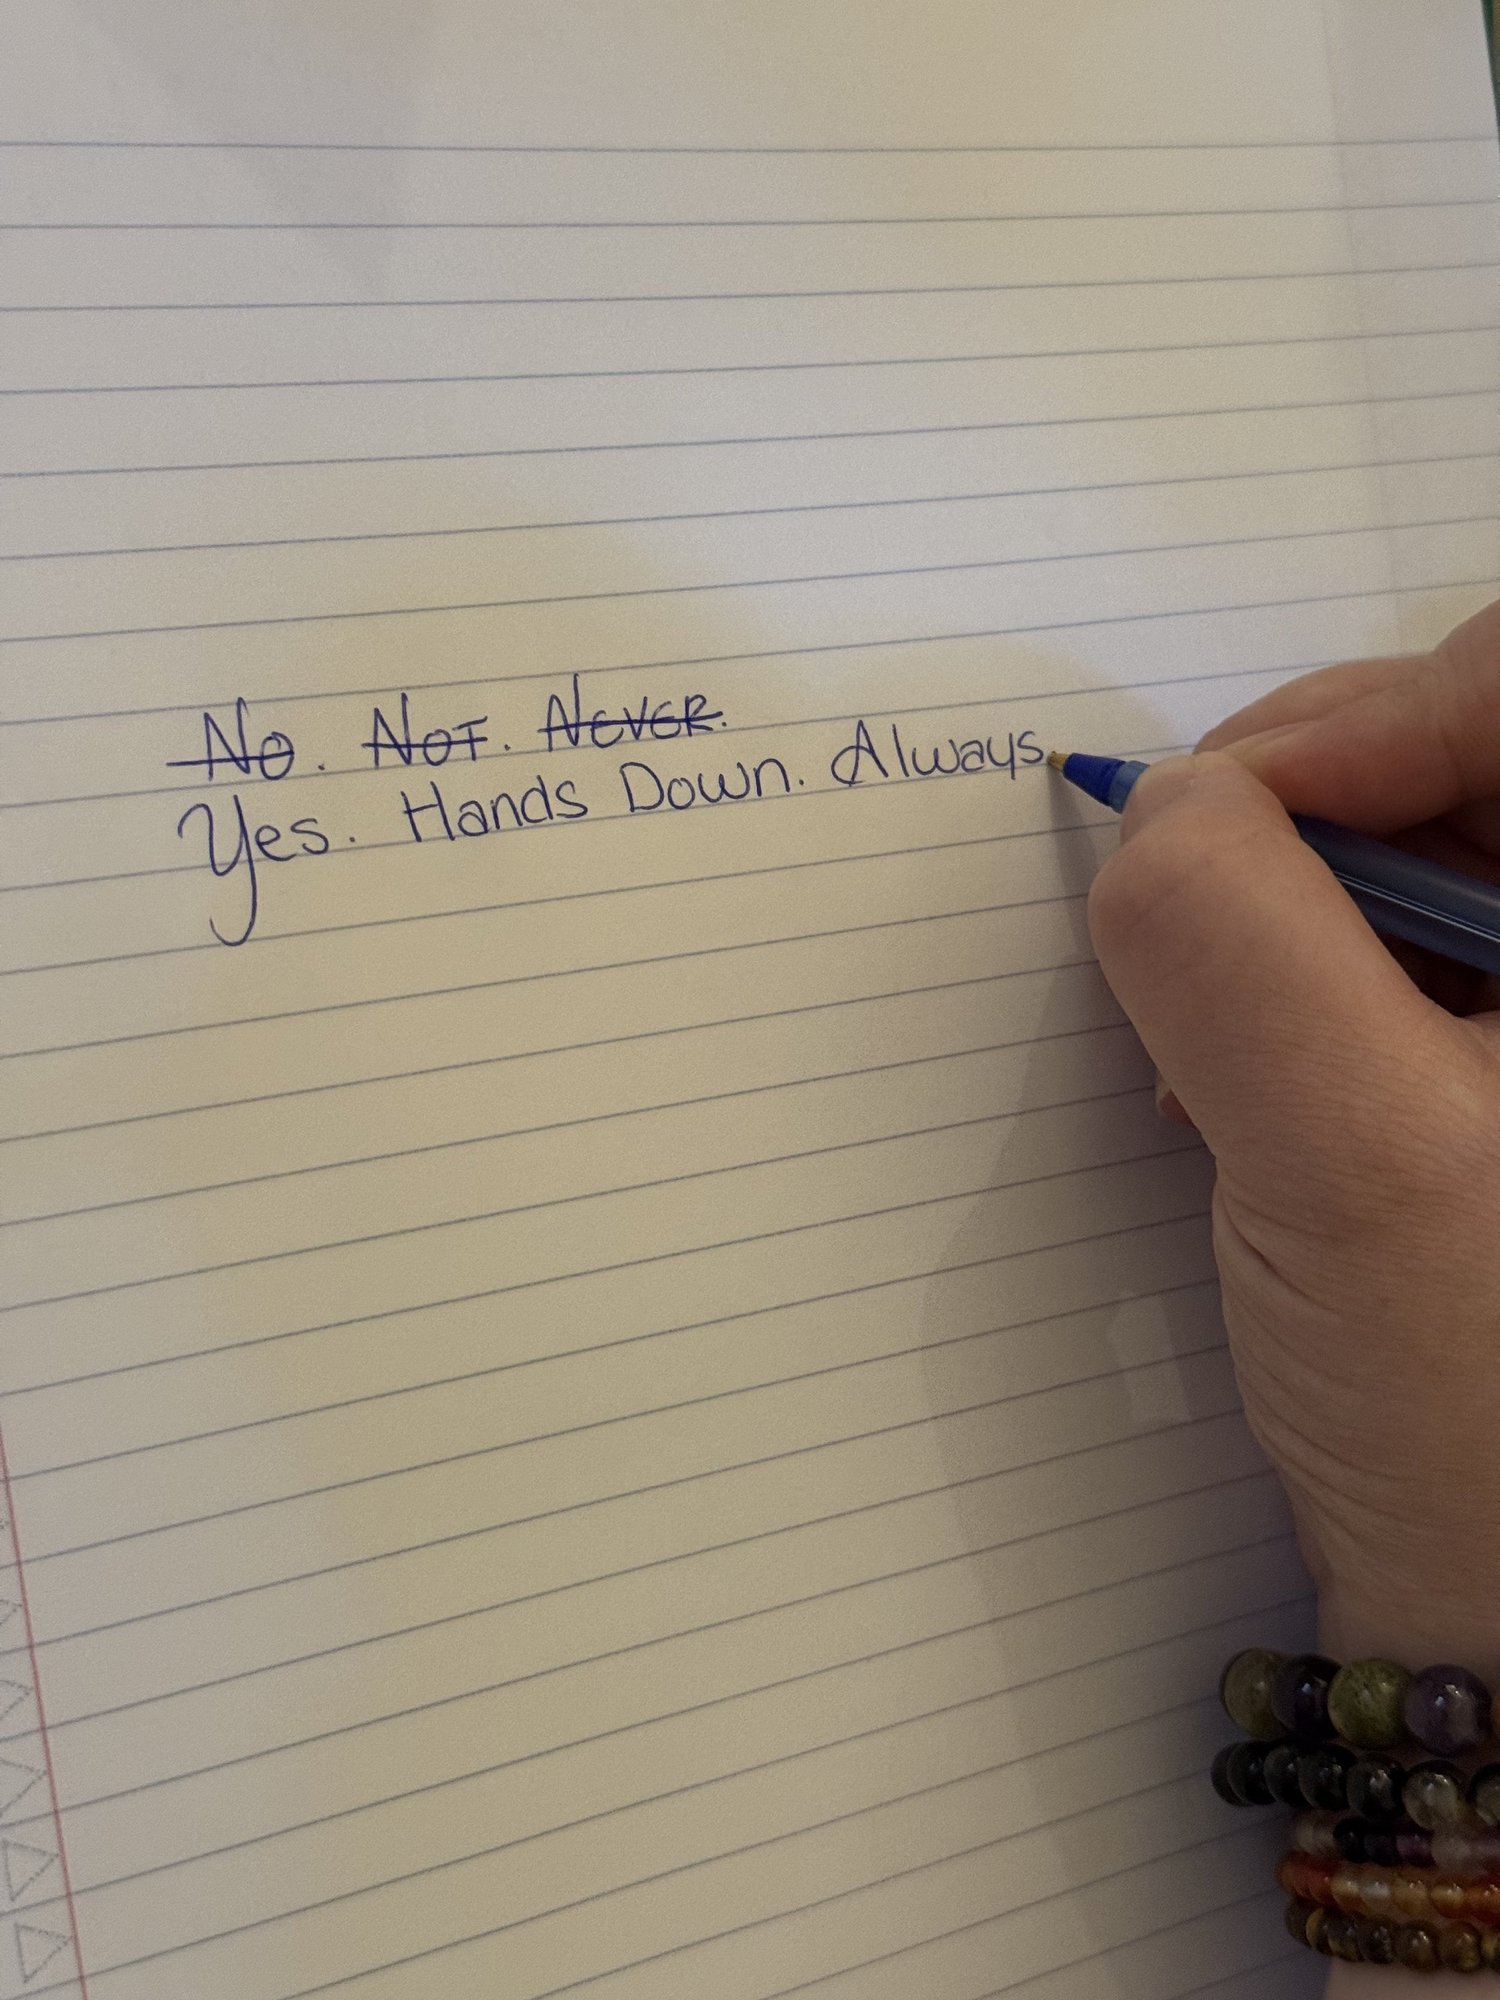 No. Not. Never.
Yes. Hands Down. Always